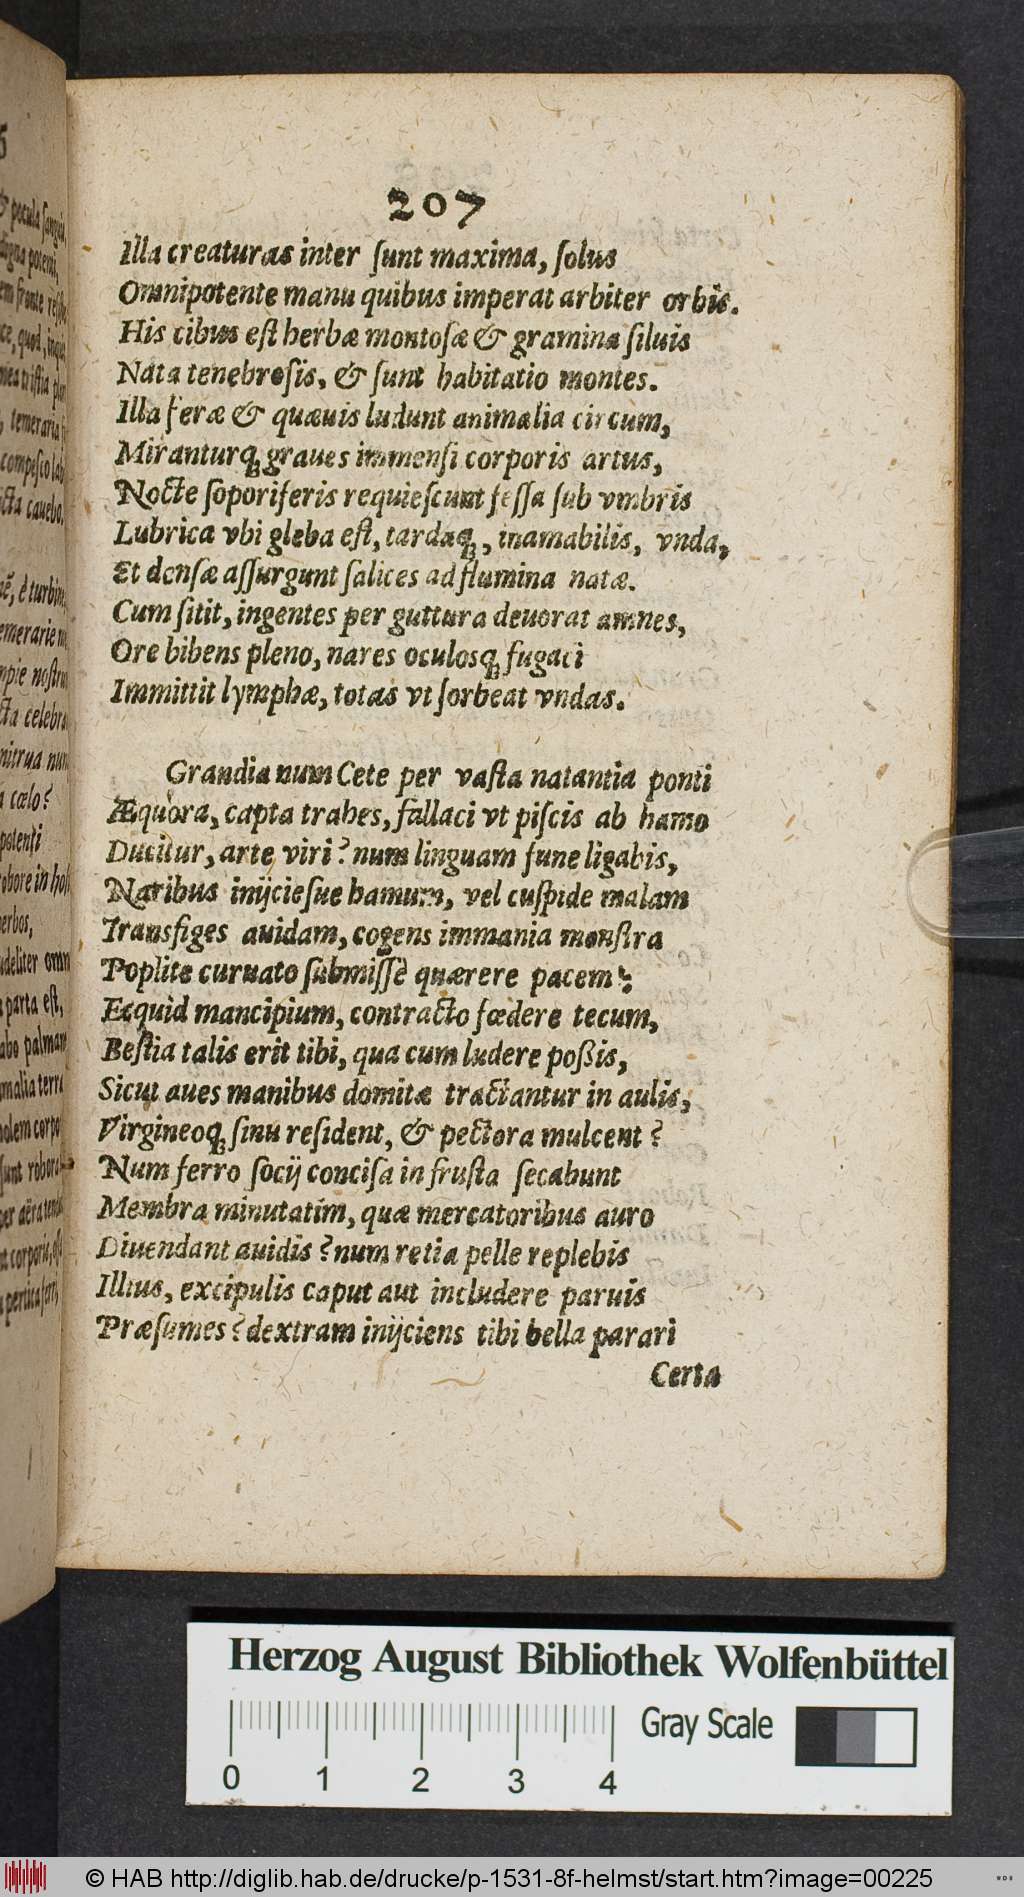 207
Illa creaturas inter ſunt maxima, ſolus
Omnipotente manu quibus imperat arbiter orbis.
His cibus eſt herbæ montoſæ & gramina ſiluis
Nata tenebroſis, & ſunt habitatio montes.
Illa feræ & quæuis ludunt animalia circum,
Miranturq́; graues immenſi corporis artus,
Nocte ſoporiferis requieſcunt feſſa ſub vmbris
Lubrica vbi gleba eſt, tardaq́;, inamabilis, vnda,
Et denſæ aſſurgunt ſalices ad flumina natæ.
Cum ſitit, ingentes per guttura deuorat amnes,
Ore bibens pleno, nares oculosq́; fugaci
Immittit lymphæ, totas vt ſorbeat vndas.
Grandia num Cete per vaſta natantia ponti
Æquora, capta trahes, fallaci vt piſcis ab hamo
Ducitur, arte viri? num linguam fune ligabis,
Naribus inijcieſue hamum, vel cuſpide malam
Transfiges auidam, cogens immania monſtra
Poplite curuato ſubmiſſè quærere pacem?
Ecquid mancipium, contracto fœdere tecum,
Beſtia talis erit tibi, qua cum ludere poßis,
Sicut aues manibus domitæ tractantur in aulis,
Virgineoq́; ſinu reſident, & pectora mulcent?
Num ferro ſocij conciſa in fruſta ſecabunt
Membra minutatim, quæ mercatoribus auro
Diuendant auidis? num retia pelle replebis
Illius, excipulis caput aut includere paruis
Præſumes? dextram inijciens tibi bella parari
Certa
Herzog August Bibliothek Wolfenbüttel
Gray Scale
0 1 2 3 4
© HAB http://diglib.hab.de/drucke/p-1531-8f-helmst/start.htm?image=00225